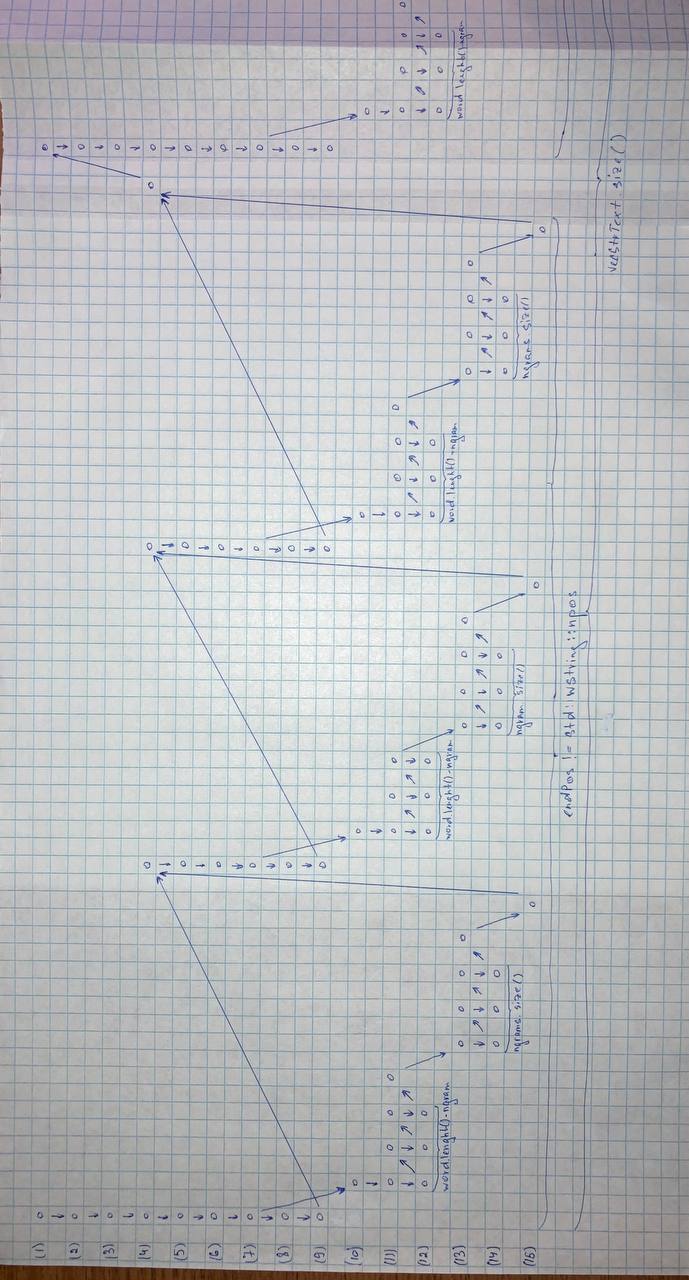 (1)
(2)
(3)
(4)
(5)
(6)
(7)
(8)
(9)
(10)
(11)
(12)
(13)
(14)
(15)
word.lenght()-ngram
ngrams.size()
word.lenght()-ngram
ngram.size()
word.lenght()-ngram
ngrams.size()
word.lenght()-ngram
endPos != std::wstring::npos
vecStrText.size()